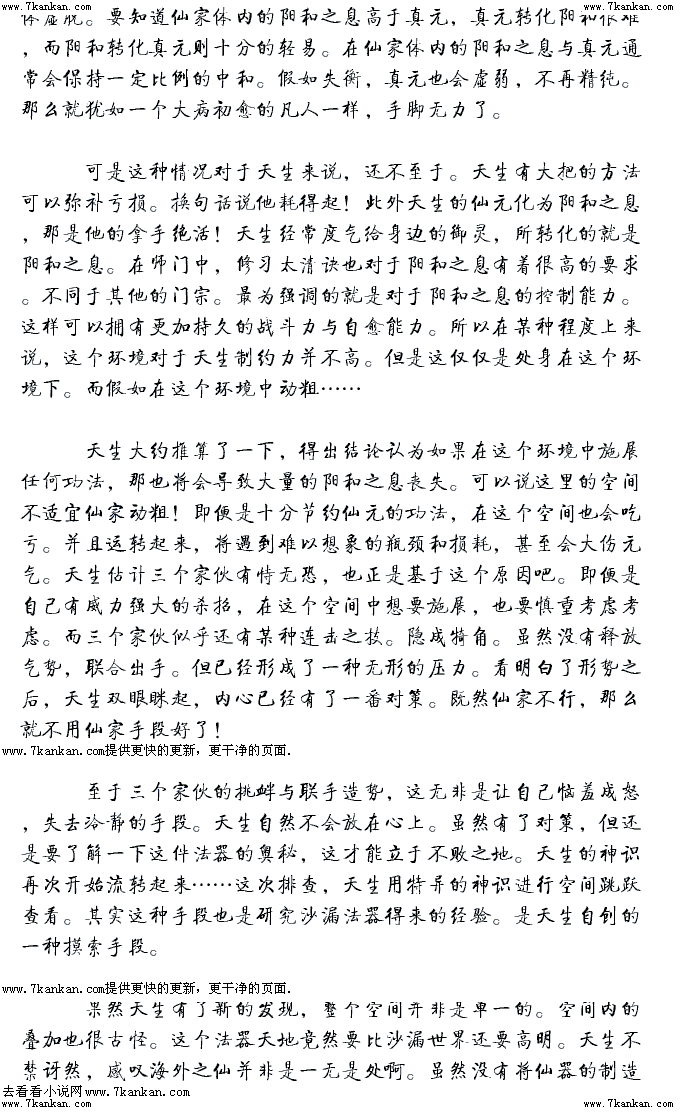 www.7kankan.com www.7kankan.com www.7kankan.com
体虚脱。要知道仙家体内的阳和之息高于真元，真元转化阳和很难
，而阳和转化真元则十分的轻易。在仙家体内的阳和之息与真元通
常会保持一定比例的中和。假如失衡，真元也会虚弱，不再精纯。
那么就犹如一个大病初愈的凡人一样，手脚无力了。
可是这种情况对于天生来说，还不至于。天生有大把的方法
可以弥补亏损。换句话说他耗得起！此外天生的仙元化为阳和之息
，那是他的拿手绝活！天生经常度气给身边的御灵，所转化的就是
阳和之息。在师门中，修习太清诀也对于阳和之息有着很高的要求
。不同于其他的门宗。最为强调的就是对于阳和之息的控制能力。
这样可以拥有更加持久的战斗力与自愈能力。所以在某种程度上来
说，这个环境对于天生制约力并不高。但是这仅仅是处身在这个环
境下。而假如在这个环境中动粗……
天生大约推算了一下，得出结论认为如果在这个环境中施展
任何功法，那也将会导致大量的阳和之息丧失。可以说这里的空间
不适宜仙家动粗！即便是十分节约仙元的功法，在这个空间也会吃
亏。并且运转起来，将遇到难以想象的瓶颈和损耗，甚至会大伤元
气。天生估计三个家伙有恃无恐，也正是基于这个原因吧。即便是
自己有威力强大的杀招，在这个空间中想要施展，也要慎重考虑考
虑。而三个家伙似乎还有某种连击之技。隐成犄角。虽然没有释放
气势，联合出手。但已经形成了一种无形的压力。看明白了形势之
后，天生双眼眯起，内心已经有了一番对策。既然仙家不行，那么
就不用仙家手段好了！
www.7kankan.com提供更快的更新，更干净的页面.
至于三个家伙的挑衅与联手造势，这无非是让自己恼羞成怒
，失去冷静的手段。天生自然不会放在心上。虽然有了对策，但还
是要了解一下这件法器的奥秘，这才能立于不败之地。天生的神识
再次开始流转起来……这次排查，天生用特异的神识进行空间跳跃
查看。其实这种手段也是研究沙漏法器得来的经验。是天生自创的
一种摸索手段。
www.7kankan.com提供更快的更新，更干净的页面.
果然天生有了新的发现，整个空间并非是单一的。空间内的
叠加也很古怪。这个法器天地竟然要比沙漏世界还要高明。天生不
禁讶然，感叹海外之仙并非是一无是处啊。虽然没有将仙器的制造
去看看小说网www.7kankan.com
www.7kankan.com www.7kankan.com www.7kankan.com